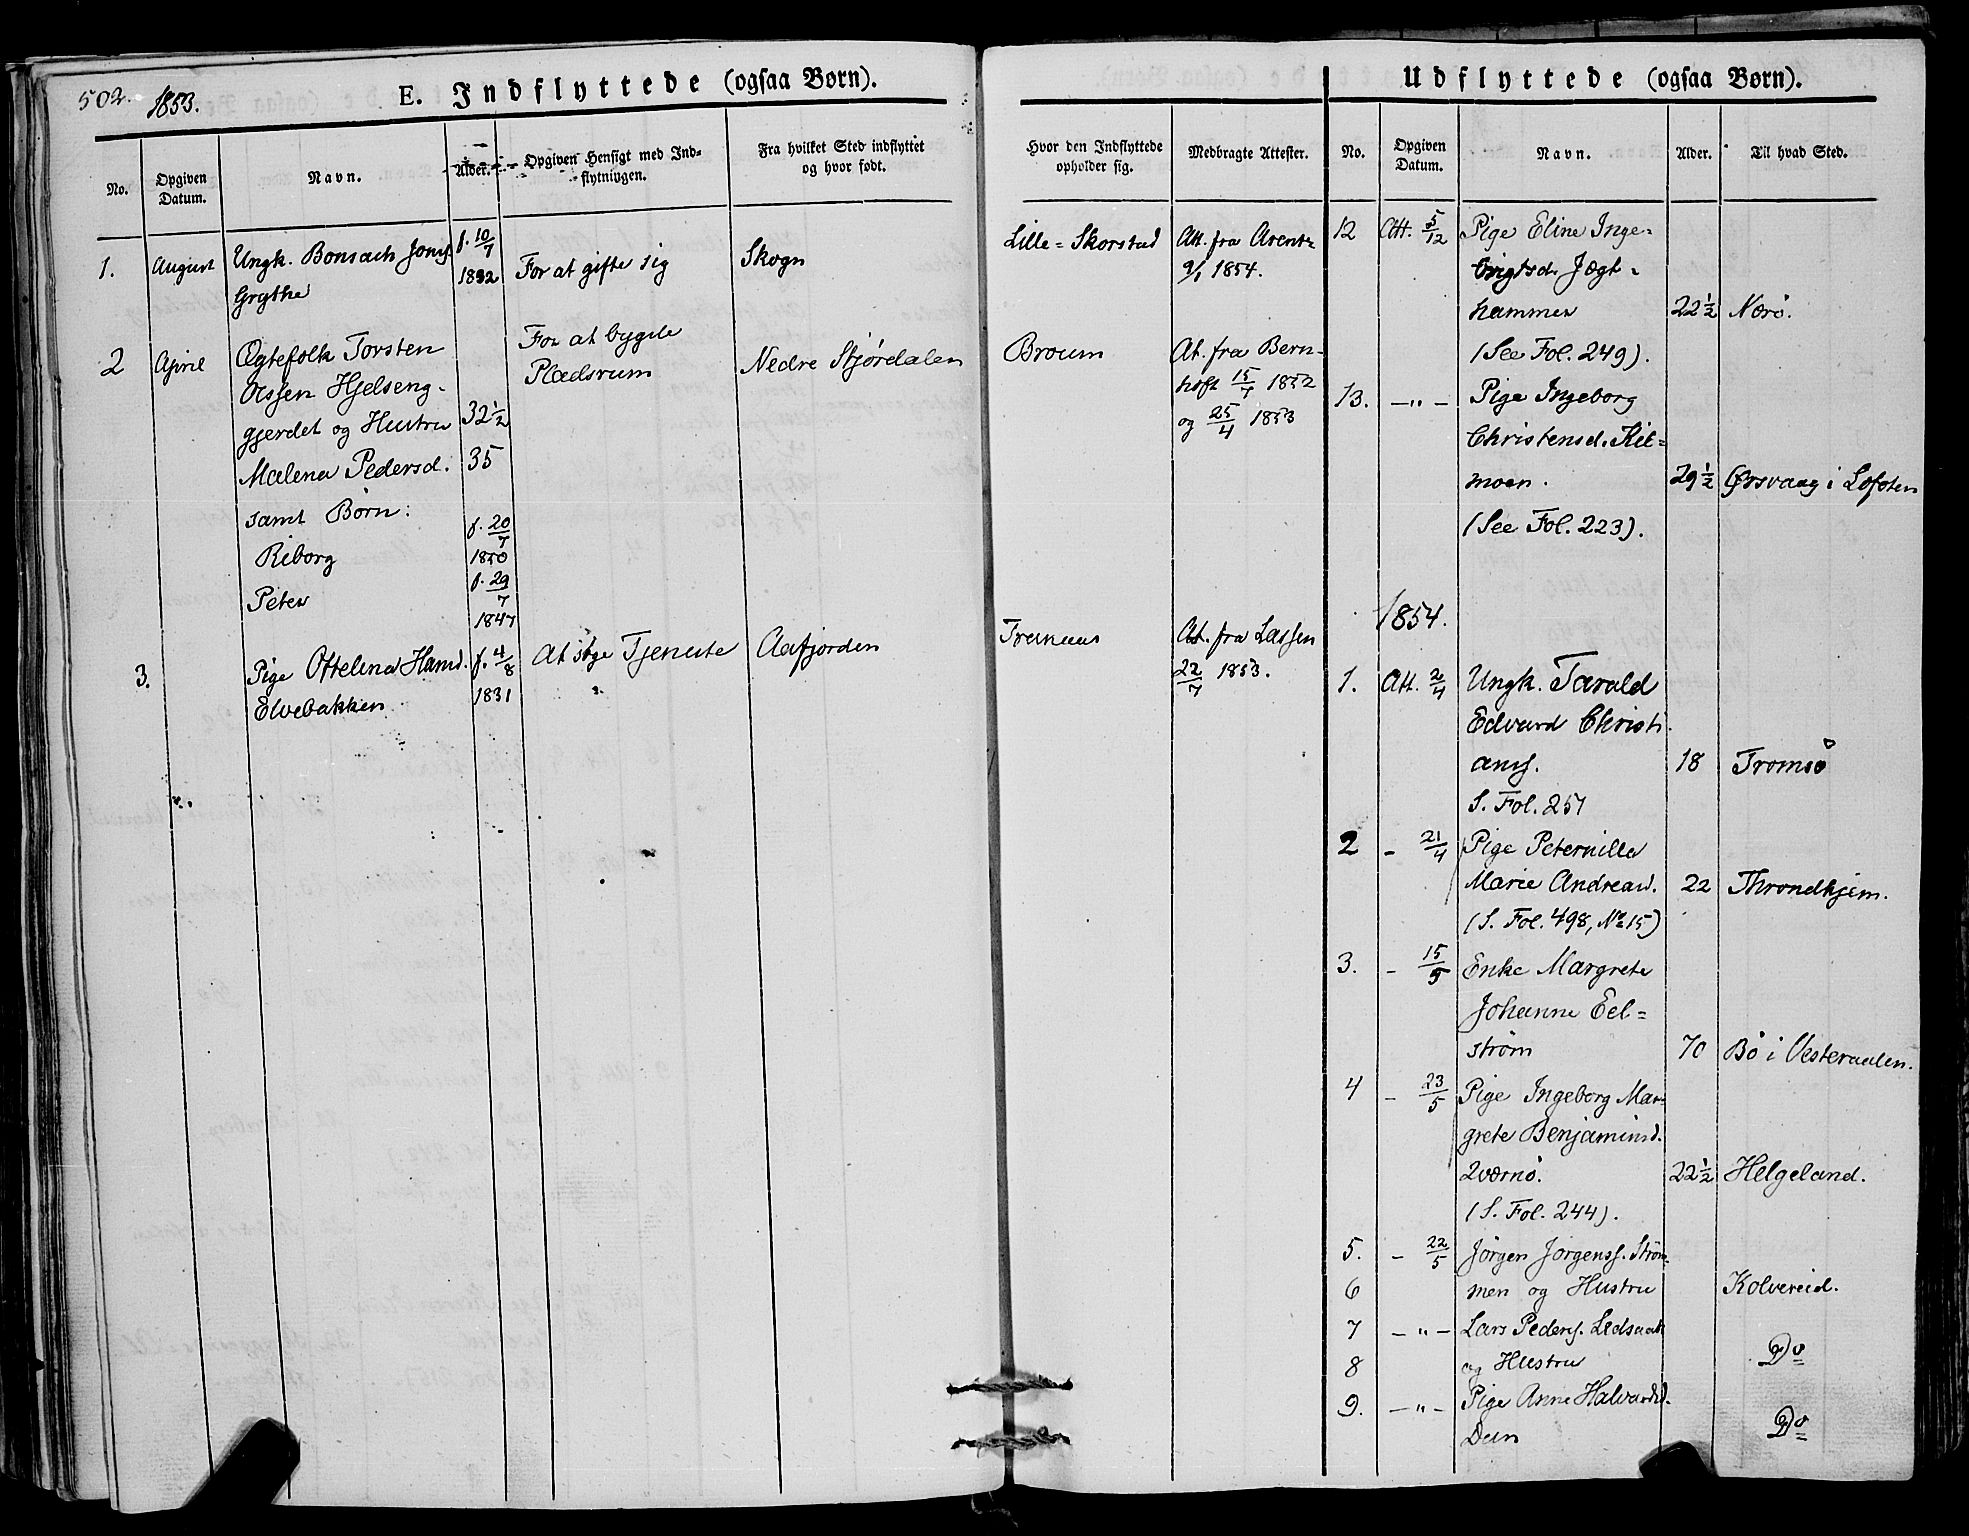 502.
1853.
E. Indflyttede (ogsaa Børn).
No.
Opgiven Datum.
Navn.
Alder.
Opgiven Hensigt med Ind-
flytningen.
Fra hvilket Sted indflyttet
og hvor født.
Hvor den Indflyttede
opholder sig.
Medbragte Attester.
1.
August
Ungk. Bonsach Jons.
Grythe
f. 10/7
1832
For at gifte sig
Skogn
Lille-Skorstad
Att. fra Arentz
9/1 1854.
2
April
Ægtefolk Torsten
Olssen Hjelseng-
gjerdet og Hustru
32 1/2
Malena Pedersd.
35
samt Børn:
Riborg
f. 20/7
1850
Peter
f. 29/7
1847
For at bygsle
Pladsrum
Nedre Stjørdalen
Broum
At. fra Bern-
hoft 15/7 1852
og 25/4 1853
3.
Pige Ottelina Hansd.
Elvebakken
f. 4/8
1831
At søge Tjeneste
Aafjorden
Tranaas
At. fra Lassen
22/7 1853.
Udflyttede (ogsaa Børn).
No.
Opgiven
Datum.
Navn.
Alder.
Til hvad Sted.
12
Att. 5/12
Pige Eline Inge=
brigtsd. Jægt-
hammer
22 1/2
Nærö.
(See Fol. 249).
13.
— " —
Pige Ingeborg
Christensd. Kil=
moen.
29 1/2
Ørsvaag i Lofoten
(See Fol. 223).
1854.
1.
Att. 2/4
Ungk. Tarald
Edvard Christi
ans.
18
Tromsö
S. Fol. 257
2
- 21/4
Pige Peternilla
Marie Andreasd.
22
Throndhjem.
(S. Fol. 498, No 15)
3.
- 15/5
Enke Margrete
Johanne Eel=
ström
70
Bö i Vesteraalen.
4
- 23/5
Pige Ingeborg Mar-
grete Benjaminsd.
Qværnö.
22 1/2
Helgeland.
(S. Fol. 244).
5.
- 22/5
Jörgen Jörgenss. Ström-
6
men og Hustru
Kolvereid.
7
— " —
Lars Peders.
8
og Hustru
Do
9.
— " —
Pige Anne Halvardsd.
Duun
Do